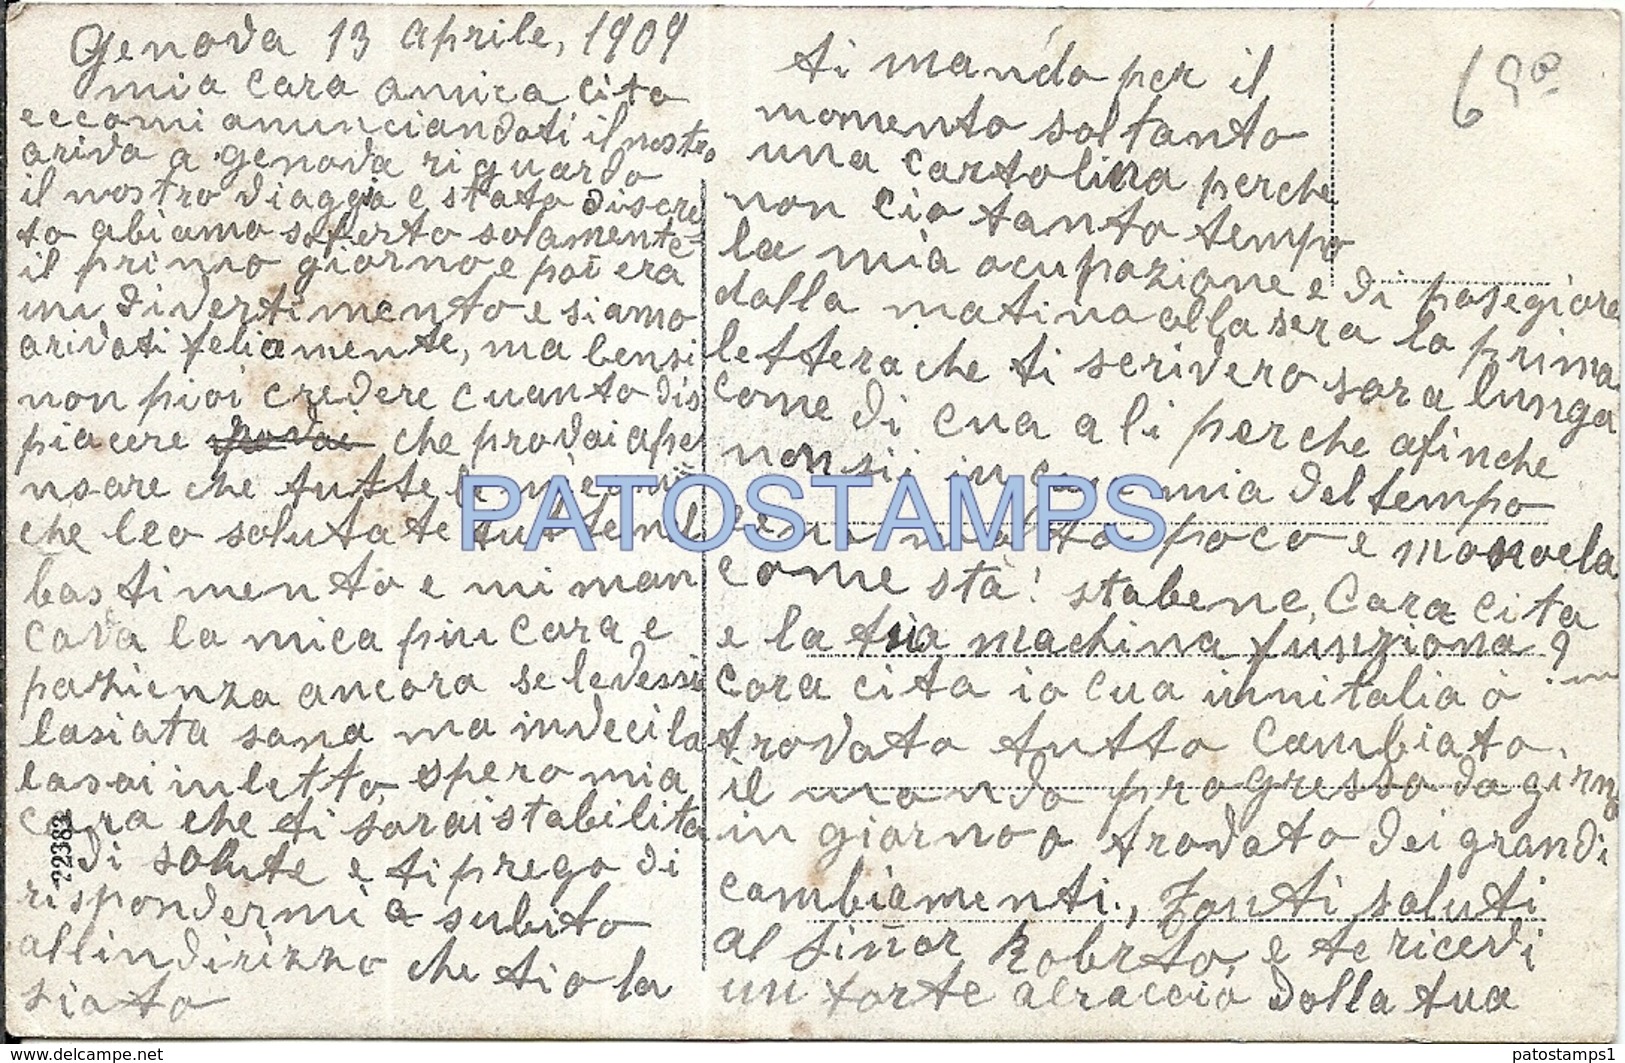 Genova 13 aprile, 1909
mia cara amica cita
eccomi anunciandoti il nostro
arivo a genova riguardo
il nostro viaggio e stato discre
to abiamo soferto solamente
il primo giorno e poi era
un divertimento e siamo
arivati felicemente, ma bensi
non pioi credere cuanto dis
piacere provai che provai a pe
nsare che tutte le
che leo salutate tutte nel
bastimento e mi man
cava la mica piu cara e
pazienza ancora se lavessi
lasiata sana ma inveci la
lasai in letto, spero mia
cara che ti sarai stabilita
di salute e ti prego di
rispondermi a subito
allindirizzo che tio la
siato
22383
69º
ti mando per il
momento soltanto
una cartolina perche
non cio tanto tempo
la mia ocupazione e di pasegiare
dalla matina alla sera la prima
lettera che ti scrivero sara lunga
come di cua a li perche afinche
non sii in mia del tempo
molto poco e manoela
come stà! sta bene, Cara cita
e la tua machina funziona?
cara cita io cua innitalia ò
trovato tutto cambiato.
il mondo progressa da giorno
in giorno o trovato dei grandi
cambiamenti., Tanti saluti
al siñor Robrto, e te ricevi
un forte abraccio dalla tua
PATOSTAMPS
https://www.delcampe.net
patostamps1